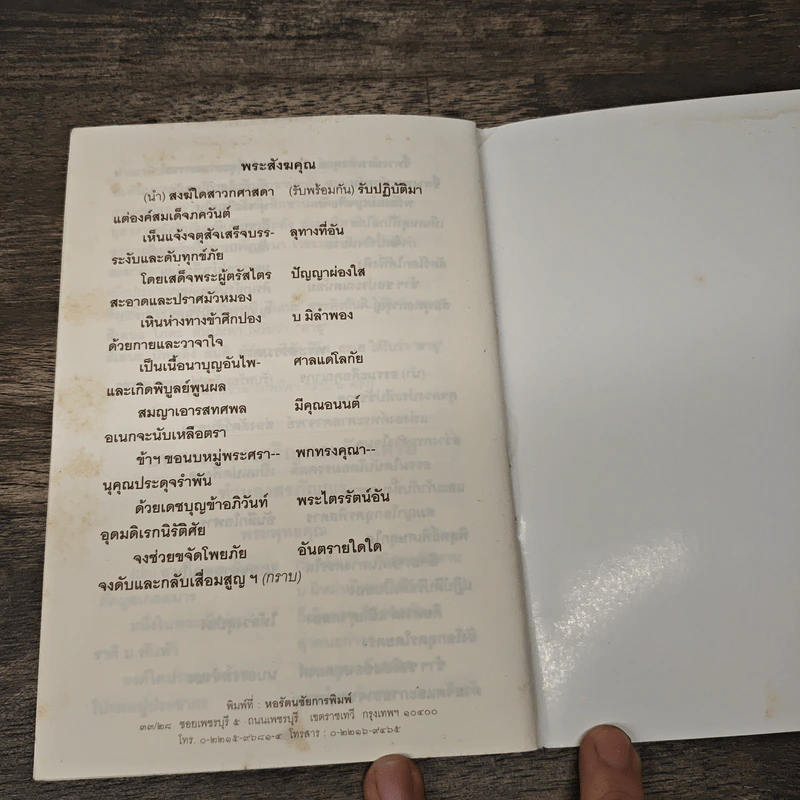 พระสังฆคุณ
(นำ) สงฆ์ใดสาวกศาสดา (รับพร้อมกัน) รับปฏิบัติมา
แต่องค์สมเด็จภควันต์
เห็นแจ้งจตุสัจเสร็จบรร- ลุทางที่อัน
ระงับและดับทุกข์ภัย
โดยเสด็จพระผู้ตรัสไตร ปัญญาผ่องใส
สะอาดและปราศมัวหมอง
เหินห่างทางข้าศึกปอง บ มิลำพอง
ด้วยกายและวาจาใจ
เป็นเนื้อนาบุญอันไพ- ศาลแด่โลกัย
และเกิดพิบูลย์พูนผล
สมญาเอารสทศพล มีคุณอนนต์
อเนกจะนับเหลือตรา
ข้าฯ ขอนบหมู่พระศรา-- พกทรงคุณา--
นุคุณประดุจรำพัน
ด้วยเดชบุญข้าอภิวันท์ พระไตรรัตน์อัน
อุดมดิเรกนิรัติศัย
จงช่วยขจัดโพยภัย อันตรายใดใด
จงดับและกลับเสื่อมสูญ ฯ (กราบ)
พิมพ์ที่ : หอรัตนชัยการพิมพ์
๓๓/๒๘ ซอยเพชรบุรี ๕ ถนนเพชรบุรี เขตราชเทวี กรุงเทพฯ ๑๐๔๐๐
โทร. ๐-๒๒๑๕-๙๖๘๑-๔ โทรสาร : ๐-๒๒๑๖-๙๔๖๕